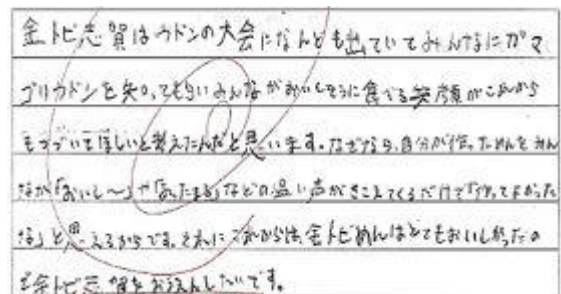 金トビ志賀はウドンの大会になんども出ていてみんなにガマ
ゴリウドンを知ってもらいみんながおいしそうに食べる笑顔がこれから
もつづいてほしいと考えたんだと思います。なぜなら、自分が作っためんをみん
なが「おいし〜」や「あったまる」などの温い声がきこえてくるだけで「作ってよかった
な」と思えるからです。それにこれからは、金トビめんはとてもおいし
金トビ志賀をおうえんしたいです。